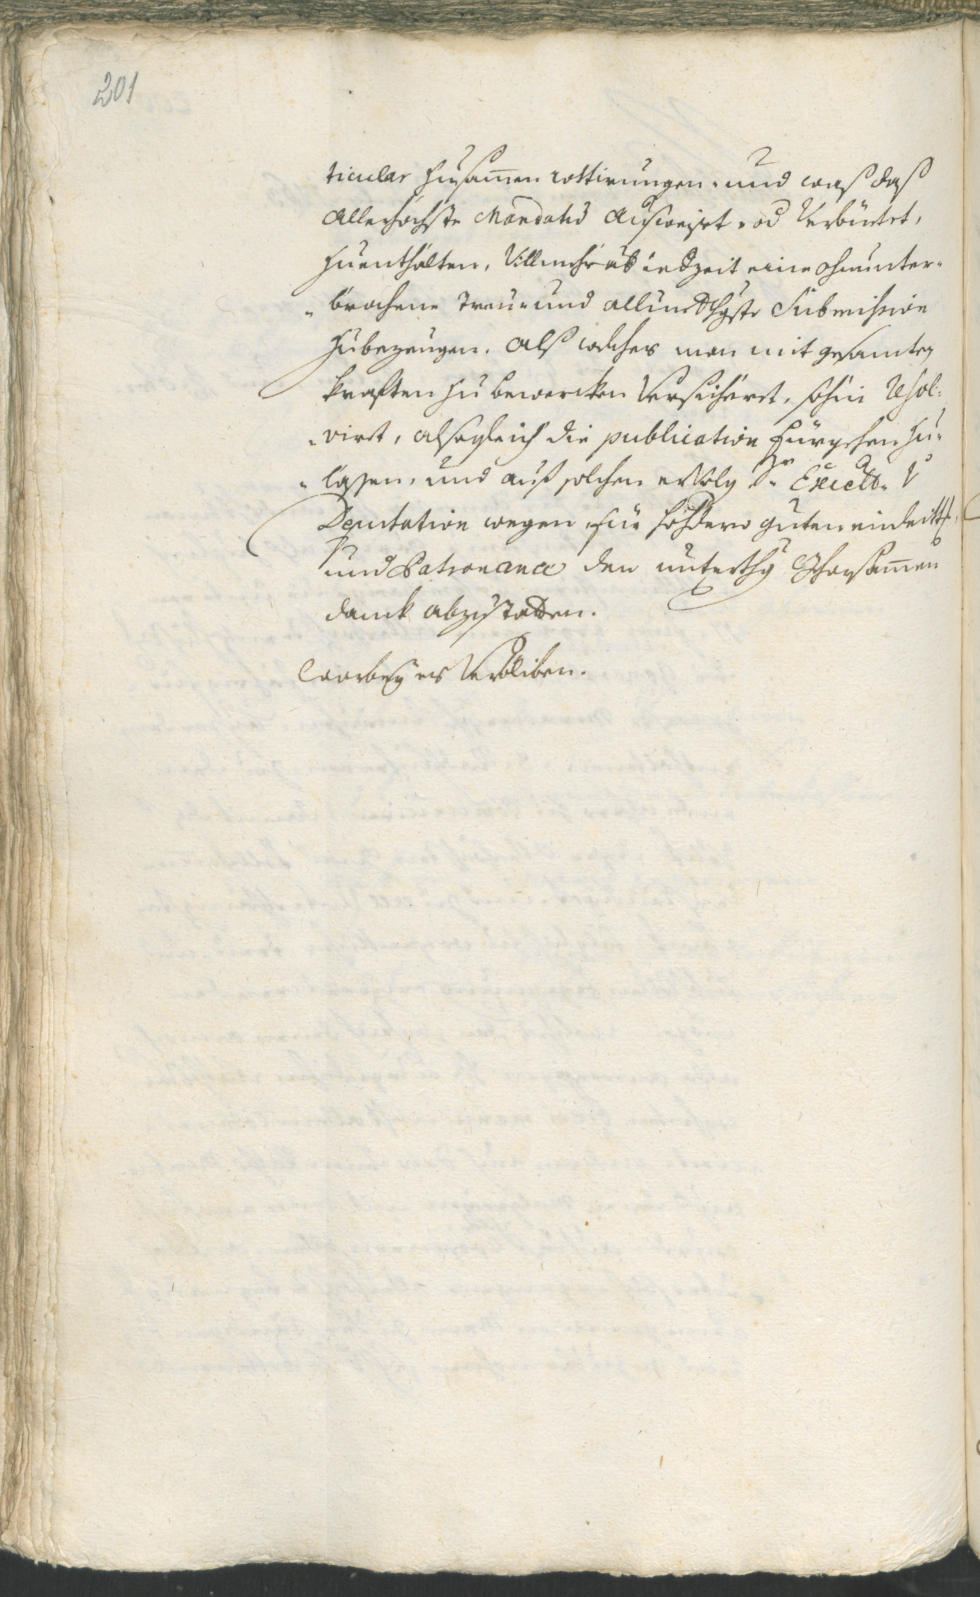 201
ticular zusammen rottirungen, und waß daß
Allerhöchste Mandatū Ausweiset, od Verbüetet,
zuenthalten, Villmehr iedzeit eine ohnunter-
brochene Treu- und allundthgste Submission
zubezeugen, Alß welches man mit gesamten
kräfften zu bewercken Versicheret, sohin resol-
virt, alsogleich die publication fürgehen zu-
lassen, und auß solchen erfolg Sr Excell.
Deputation wegen für
und Patronance den unterthg gehorsamen
danck abzustatten.
Worbey es Verbliben.